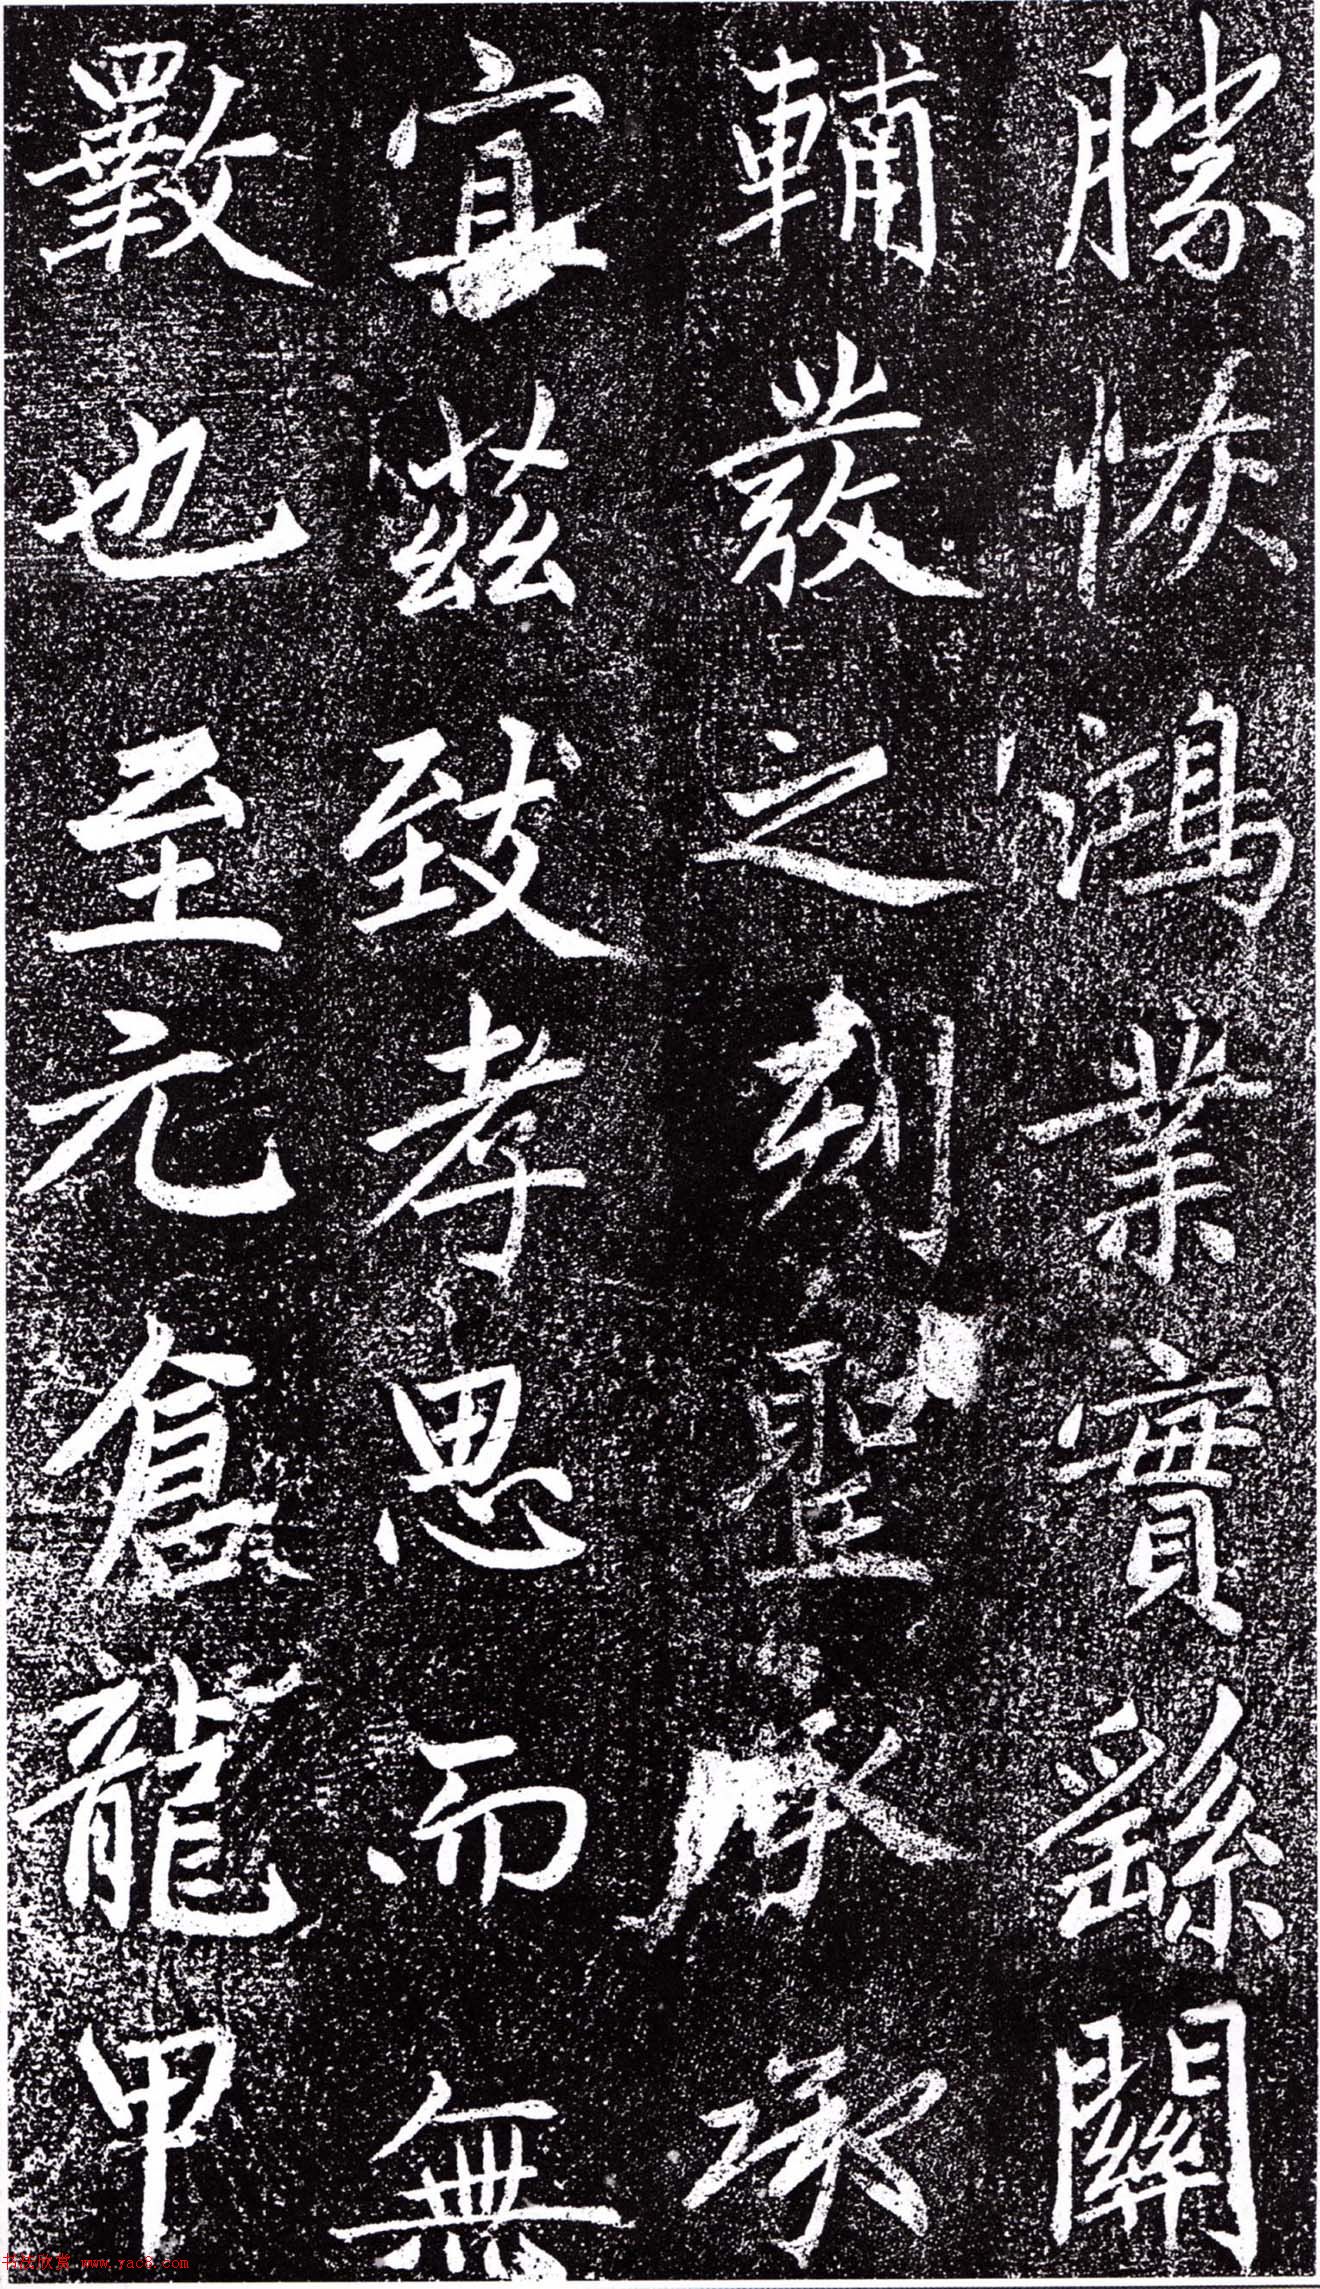 勝恢鴻業實繇關
輔發之刻聖承承
宜茲致孝思而無
斁也至元倉龍甲
书法欣赏 www.yac8.com